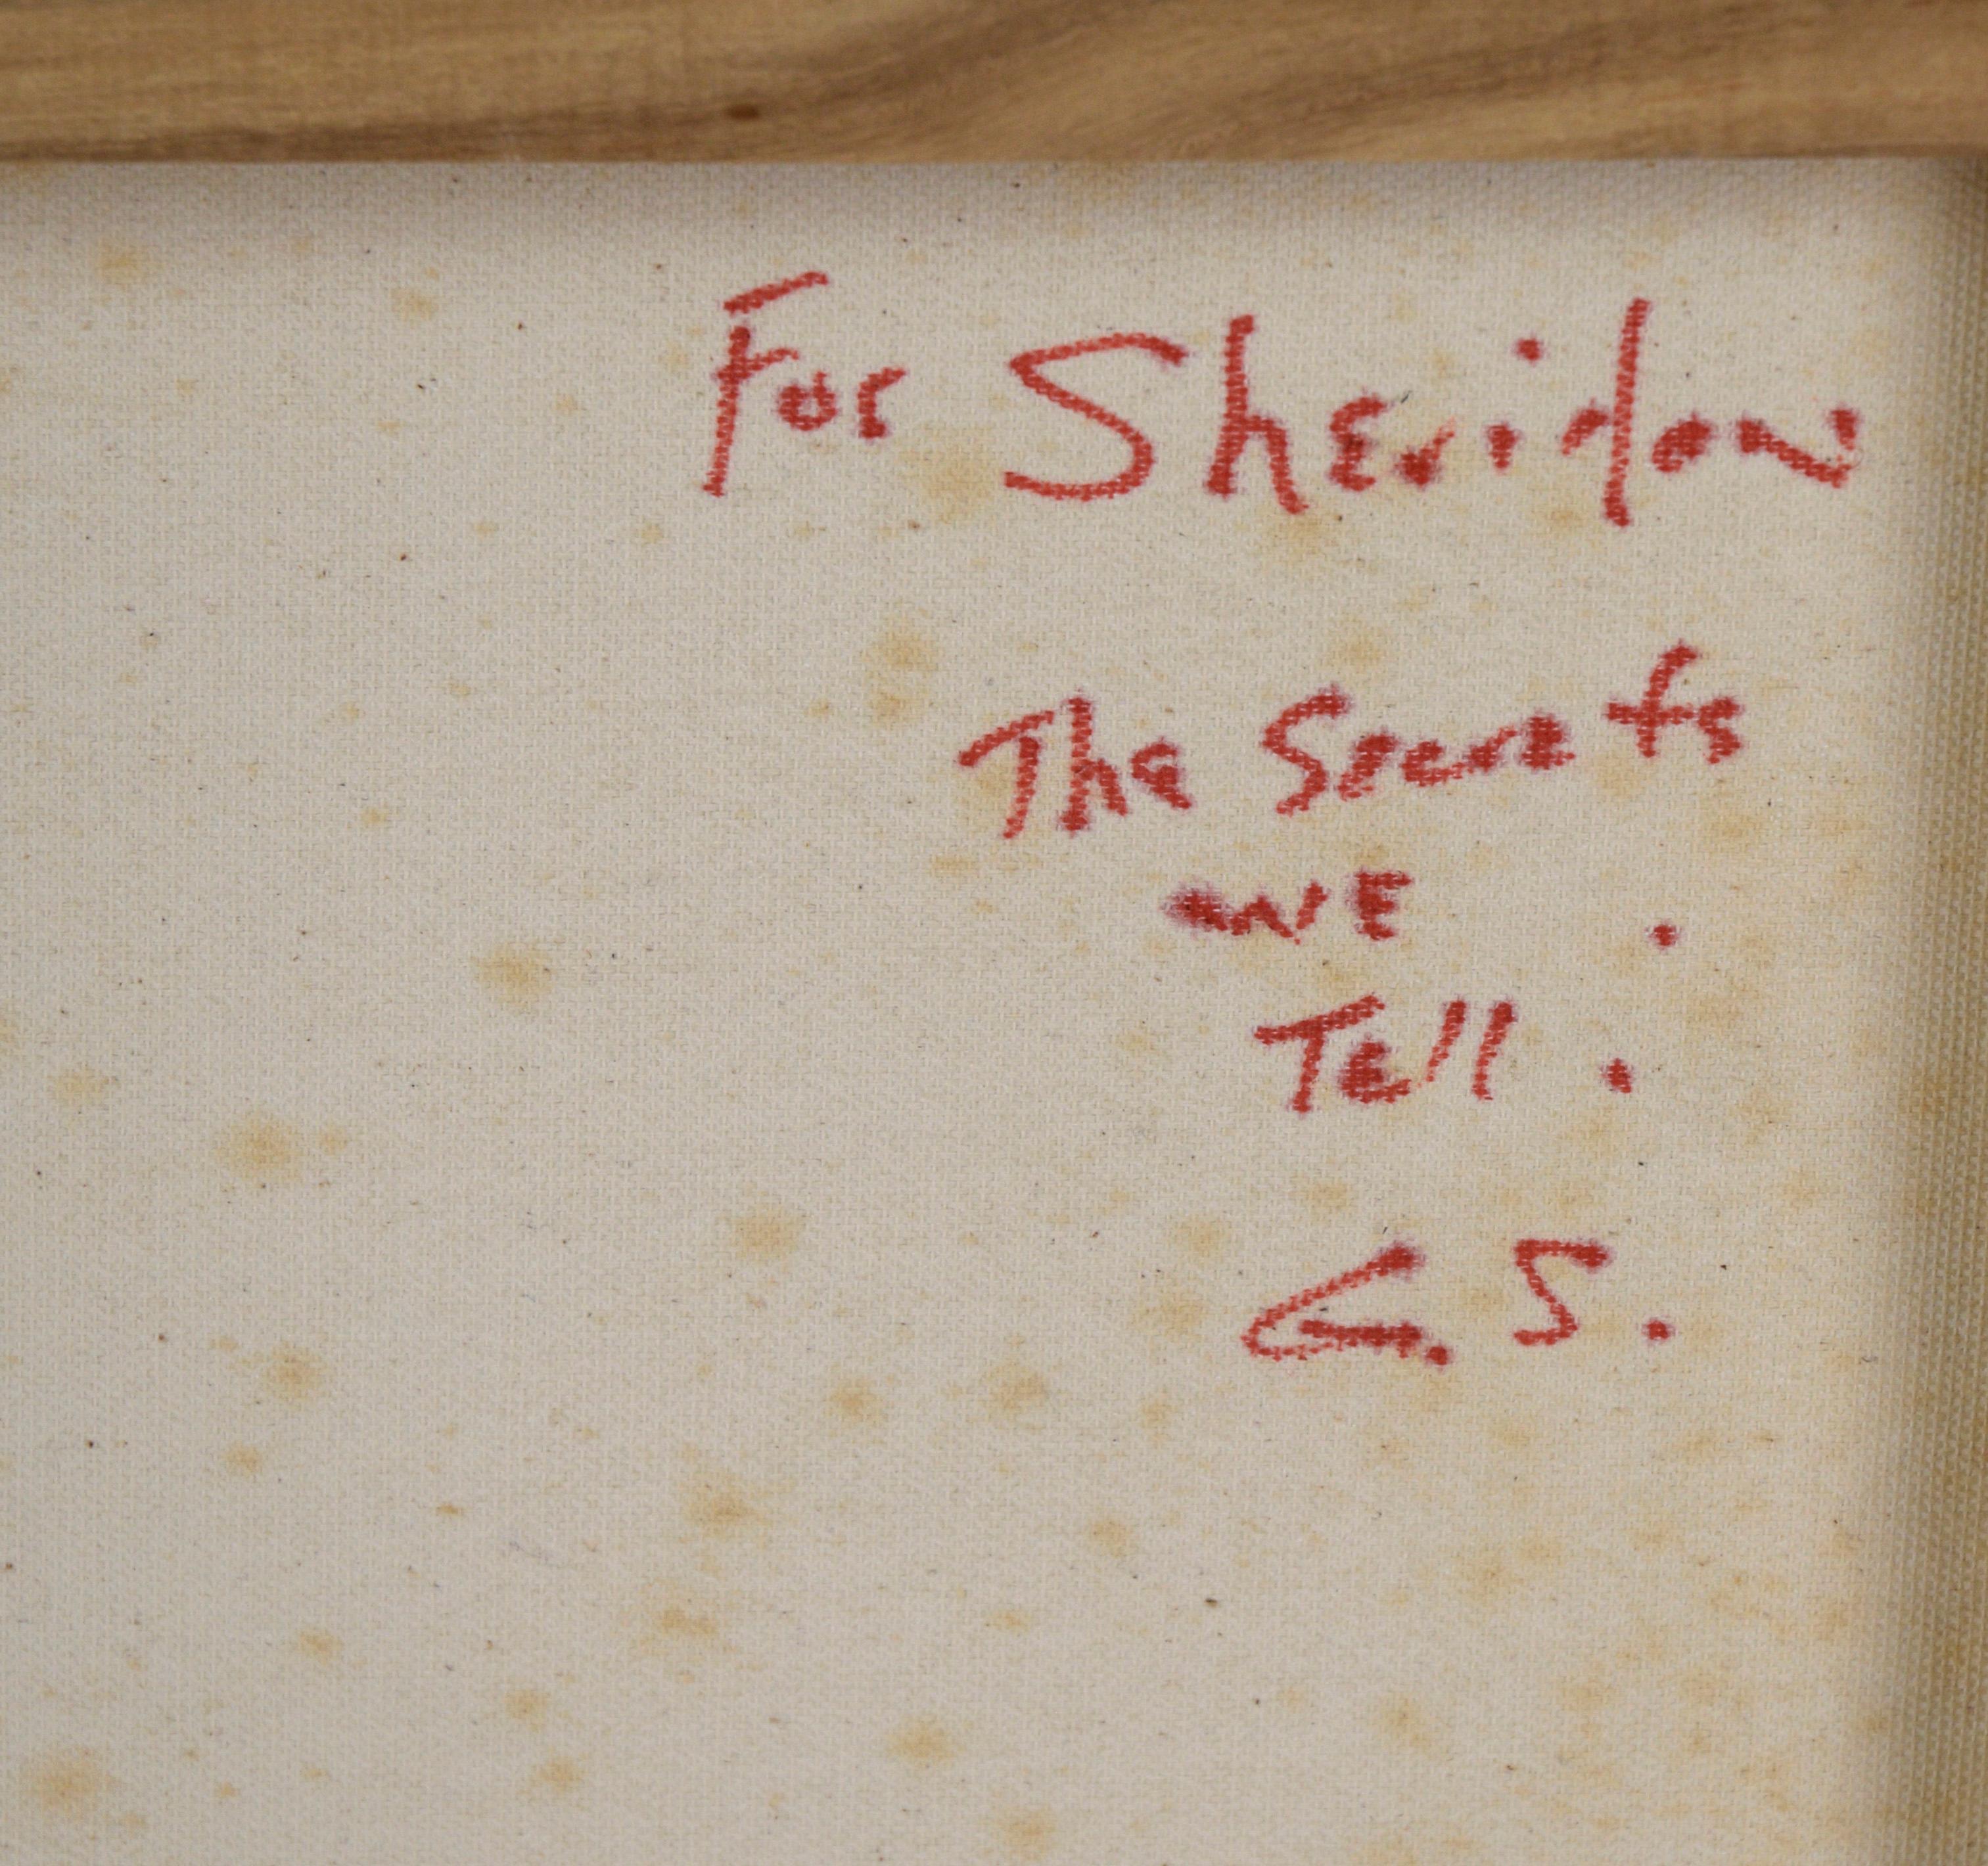 For Sheridan
The Secrets
we
Tell .
C. S.